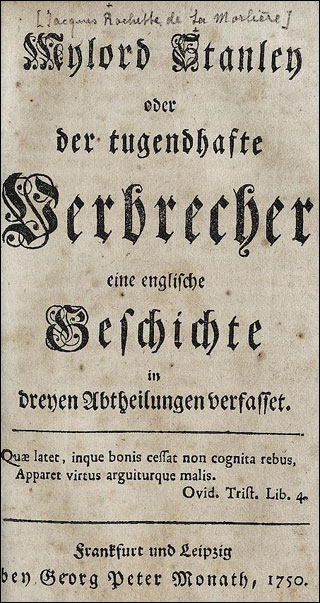 [Jacques Rochette de La Morlière]
Mylord Stanley
oder
der tugendhafte
Verbrecher
eine englische
Geschichte
in
dreyen Abtheilungen verfasset.
Quæ latet, inque bonis cessat non cognita rebus,
Apparet virtus arguiturque malis.
Ovid. Trist. Lib. 4.
Frankfurt und Leipzig
bey Georg Peter Monath, 1750.